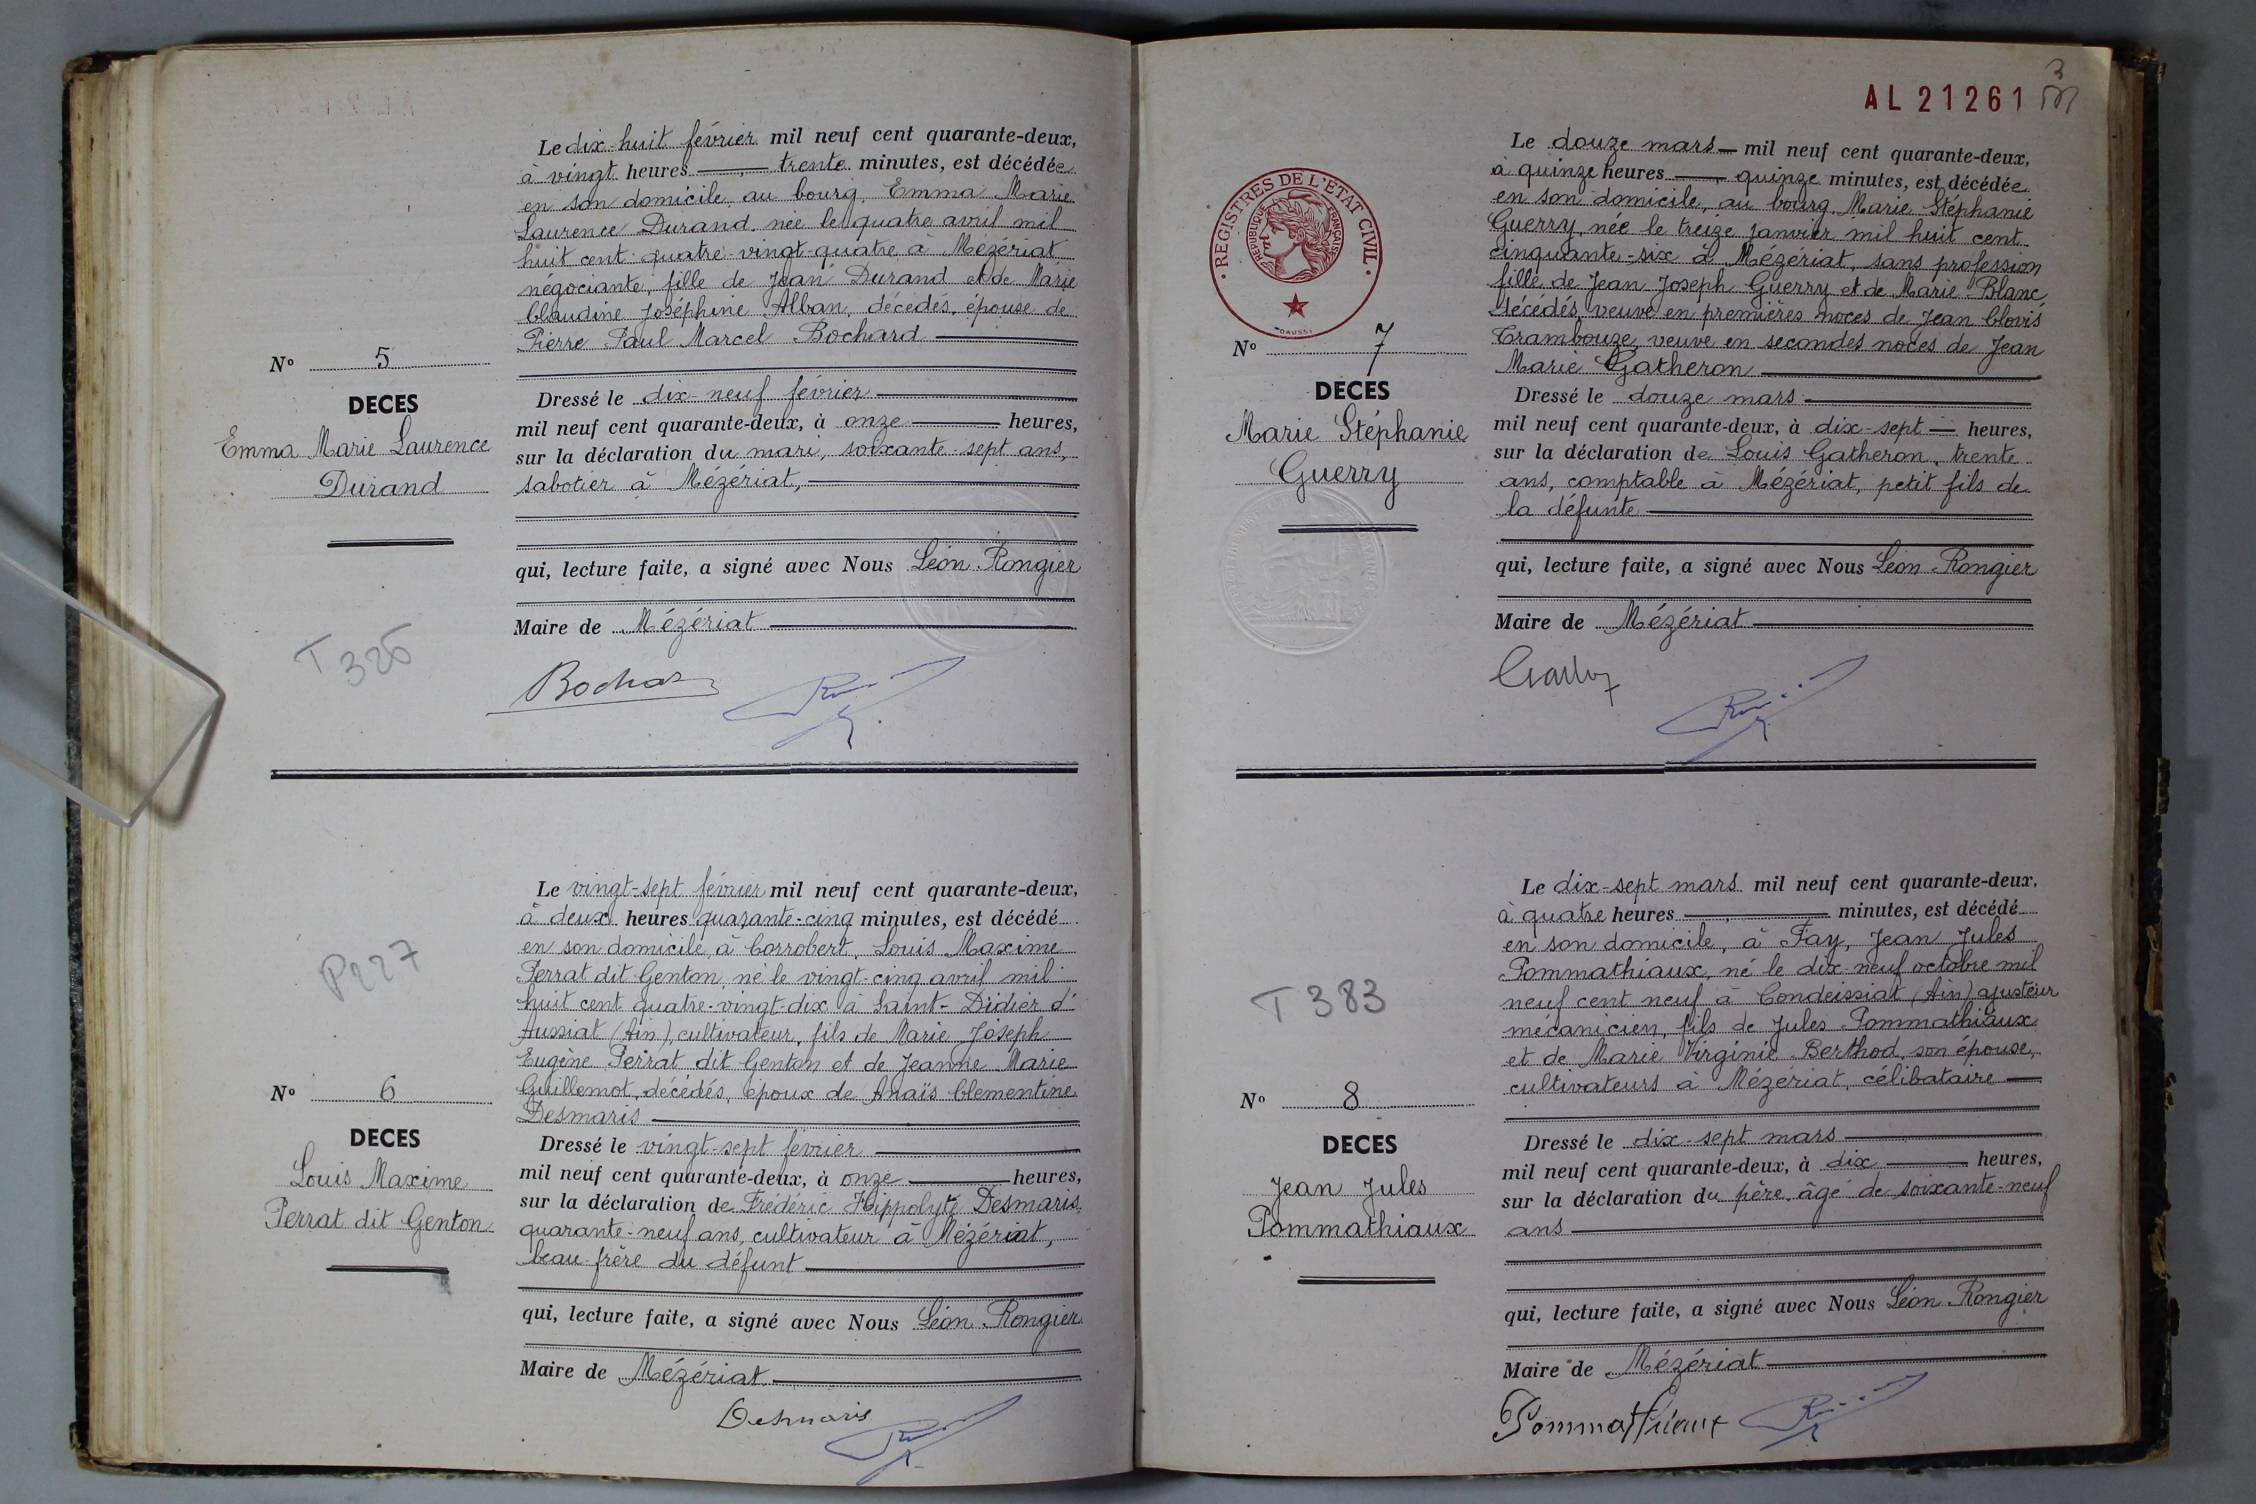 Le dix-huit février mil neuf cent quarante-deux,
à vingt heures trente minutes, est décédée
en son domicile, au bourg, Emma Marie
Laurence Durand, née le quatre avril mil
huit cent quatre-vingt-quatre, à Mézériat,
négociante, fille de Jean Durand et de Marie
Claudine Joséphine Alban, décédés, épouse de
Pierre Paul Marcel Bochard
N° 5
DECES
Emma Marie Laurence
Durand
Dressé le dix-neuf février
mil neuf cent quarante-deux, à onze heures,
sur la déclaration du mari, soixante-sept ans,
sabotier à Mézériat,
qui, lecture faite, a signé avec Nous Léon Rongier
Maire de Mézériat
T 326
Le vingt-sept février mil neuf cent quarante-deux,
à deux heures quarante-cinq minutes, est décédé
en son domicile, à Corrobert, Louis Maxime
Perrat dit Genton, né le vingt-cinq avril mil
huit cent quatre-vingt-dix à Saint-Didier d'
Aussiat (Ain), cultivateur, fils de Marie Joseph
Eugène Perrat dit Genton et de Jeanne Marie
Guillemot, décédés, époux de Anaïs Clementine
Desmaris
P227
N° 6
DECES
Louis Maxime
Perrat dit Genton
Dressé le vingt-sept février
mil neuf cent quarante-deux, à onze heures,
sur la déclaration de Frédéric Hippolyte Desmaris,
quarante-neuf ans, cultivateur à Mézériat,
beau-frère du défunt
qui, lecture faite, a signé avec Nous Léon Rongier
Maire de Mézériat
Desmaris
3
AL 21261
REGISTRES DE L'ETAT CIVIL
REPUBLIQUE FRANÇAISE
Le douze mars mil neuf cent quarante-deux,
à quinze heures quinze minutes, est décédée
en son domicile, au bourg, Marie Stéphanie
Guerry, née le treize janvier mil huit cent
cinquante-six à Mézériat, sans profession
fille de Jean Joseph Guerry et de Marie Blanc,
décédés, veuve en premières noces de Jean Clovis
Trambouze, veuve en secondes noces de Jean
Marie Gatheron
N° 7
DECES
Marie Stéphanie
Guerry
Dressé le douze mars
mil neuf cent quarante-deux, à dix-sept heures,
sur la déclaration de Louis Gatheron, trente
ans, comptable à Mézériat, petit fils de
la défunte
qui, lecture faite, a signé avec Nous Léon Rongier
Maire de Mézériat
Le dix-sept mars mil neuf cent quarante-deux,
à quatre heures minutes, est décédé
en son domicile, à Fay, Jean Jules
Pommathiaux, né le dix-neuf octobre mil
neuf cent neuf à Condeissiat (Ain) ajusteur
mécanicien, fils de Jules Pommathiaux
et de Marie Virginie Berthod, son épouse,
cultivateurs à Mézériat, célibataire
T 383
N° 8
DECES
Jean Jules
Pommathiaux
Dressé le dix-sept mars
mil neuf cent quarante-deux, à dix heures,
sur la déclaration du père, âgé de soixante-neuf
ans
qui, lecture faite, a signé avec Nous Léon Rongier
Maire de Mézériat
Pommathiaux